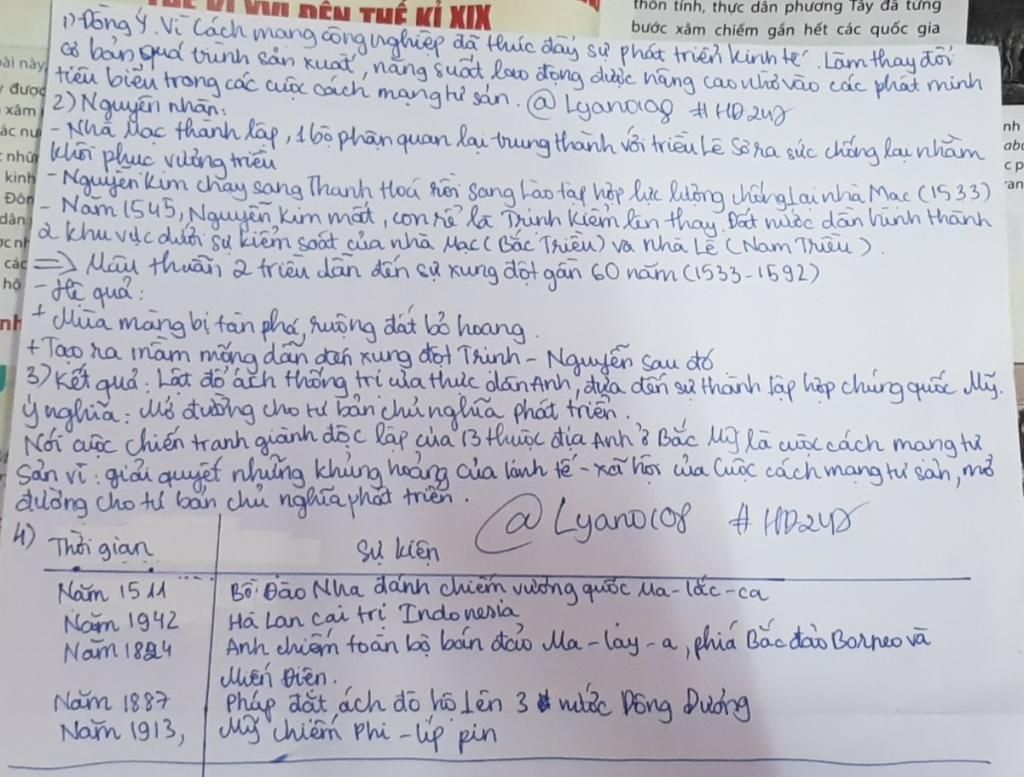 THẾ KỈ XVI ĐẾN THẾ KỈ XIX
thôn tính, thực dân phương Tây đã từng
bước xâm chiếm gần hết các quốc gia
1) Đồng Ý. Vì Cách mạng công nghiệp đã thúc đẩy sự phát triển kinh tế. Làm thay đổi
cơ bản quá trình sản xuất, năng suất lao động được nâng cao nhờ vào các phát minh
tiêu biểu trong các cuộc cách mạng tư sản. @Lyano108 #HD247
2) Nguyên nhân:
- Nhà Mạc thành lập, 1 bộ phận quan lại trung thành với triều Lê Sơ ra sức chống lại nhằm
khôi phục vương triều
- Nguyễn Kim chạy sang Thanh Hoá rồi sang Lào tập hợp lực lượng chống lại nhà Mạc (1533)
- Năm 1545, Nguyễn Kim mất, con rể là Trịnh Kiểm lên thay. Đất nước dần hình thành
2 khu vực dưới sự kiểm soát của nhà Mạc (Bắc Triều) và nhà Lê (Nam Triều).
=> Mâu thuẫn 2 triều dẫn đến sự xung đột gần 60 năm (1533-1592)
- Hệ quả:
+ Mùa màng bị tàn phá, ruộng đất bỏ hoang.
+ Tạo ra mầm mống dẫn đến xung đột Trịnh - Nguyễn sau đó
3) Kết quả: Lật đổ ách thống trị của thực dân Anh, đưa đến sự thành lập hợp chúng quốc Mỹ.
Ý nghĩa: Mở đường cho tư bản chủ nghĩa phát triển.
Nói cuộc chiến tranh giành độc lập của 13 thuộc địa Anh ở Bắc Mỹ là cuộc cách mạng tư
sản vì: giải quyết những khủng hoảng của kinh tế - xã hội của Cuộc cách mạng tư sản, mở
đường cho tư bản chủ nghĩa phát triển.
@Lyano108 #HD247
4) Thời gian Sự kiện
Năm 1511 Bồ Đào Nha đánh chiếm vương quốc Ma-lắc-ca
Năm 1942 Hà Lan cai trị Indonesia
Năm 1824 Anh chiếm toàn bộ bán đảo Ma-lay-a, phía Bắc đảo Borneo và
Miến Điện.
Năm 1887 Pháp đặt ách đô hộ lên 3 nước Đông Dương
Năm 1913, Mỹ chiếm Phi-líp pin